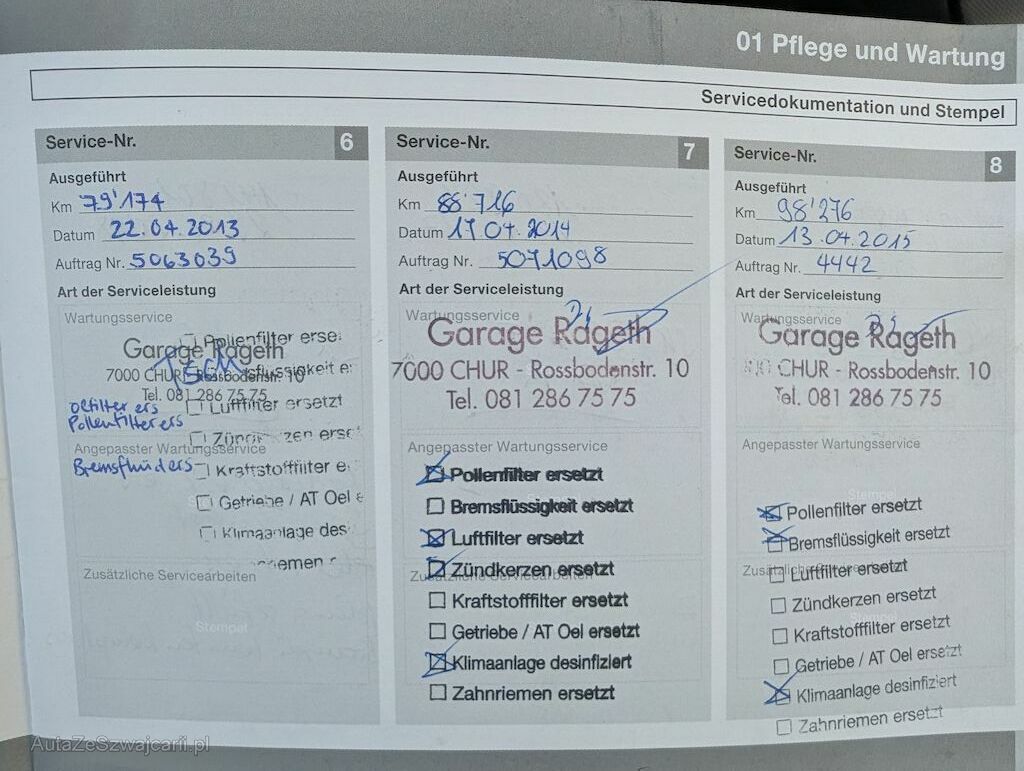 01 Pflege und Wartung
Servicedokumentation und Stempel
Service-Nr. 6
Ausgeführt
Km 79'174
Datum 22.04.2013
Auftrag Nr. 5063039
Art der Serviceleistung
Wartungsservice
Pollenfilter erse
Garage Rageth
7000 CHUR - Rossbodenstr. 10
Tel. 081 286 75 75
Oelfilter ers
Luftfilter ersetzt
Pollenfilter ers
Angepasster Wartungsservice
Bremsflüid ers
Kraftstofffilter e
Getriebe / AT Oel e
Klimaanlage des
iemen
Zusätzliche Servicearbeiten
Stempel
Service-Nr. 7
Ausgeführt
Km 88'716
Datum 17.04.2014
Auftrag Nr. 5071098
Art der Serviceleistung
Wartungsservice
Garage Rageth
7000 CHUR - Rossbodenstr. 10
Tel. 081 286 75 75
Angepasster Wartungsservice
Pollenfilter ersetzt
Bremsflüssigkeit ersetzt
Luftfilter ersetzt
Zündkerzen ersetzt
Zusätzliche Servicearbeiten
Kraftstofffilter ersetzt
Getriebe / AT Oel ersetzt
Klimaanlage desinfiziert
Zahnriemen ersetzt
Service-Nr. 8
Ausgeführt
Km 98'276
Datum 13.04.2015
Auftrag Nr. 4442
Art der Serviceleistung
Wartungsservice
Garage Rageth
CHUR - Rossbodenstr. 10
Tel. 081 286 75 75
Angepasster Wartungsservice
Stempel
Pollenfilter ersetzt
Bremsflüssigkeit ersetzt
Luftfilter ersetzt
Zündkerzen ersetzt
Kraftstofffilter ersetzt
Getriebe / AT Oel ersetzt
Klimaanlage desinfiziert
Zahnriemen ersetzt
AutaZeSzwajcarii.pl